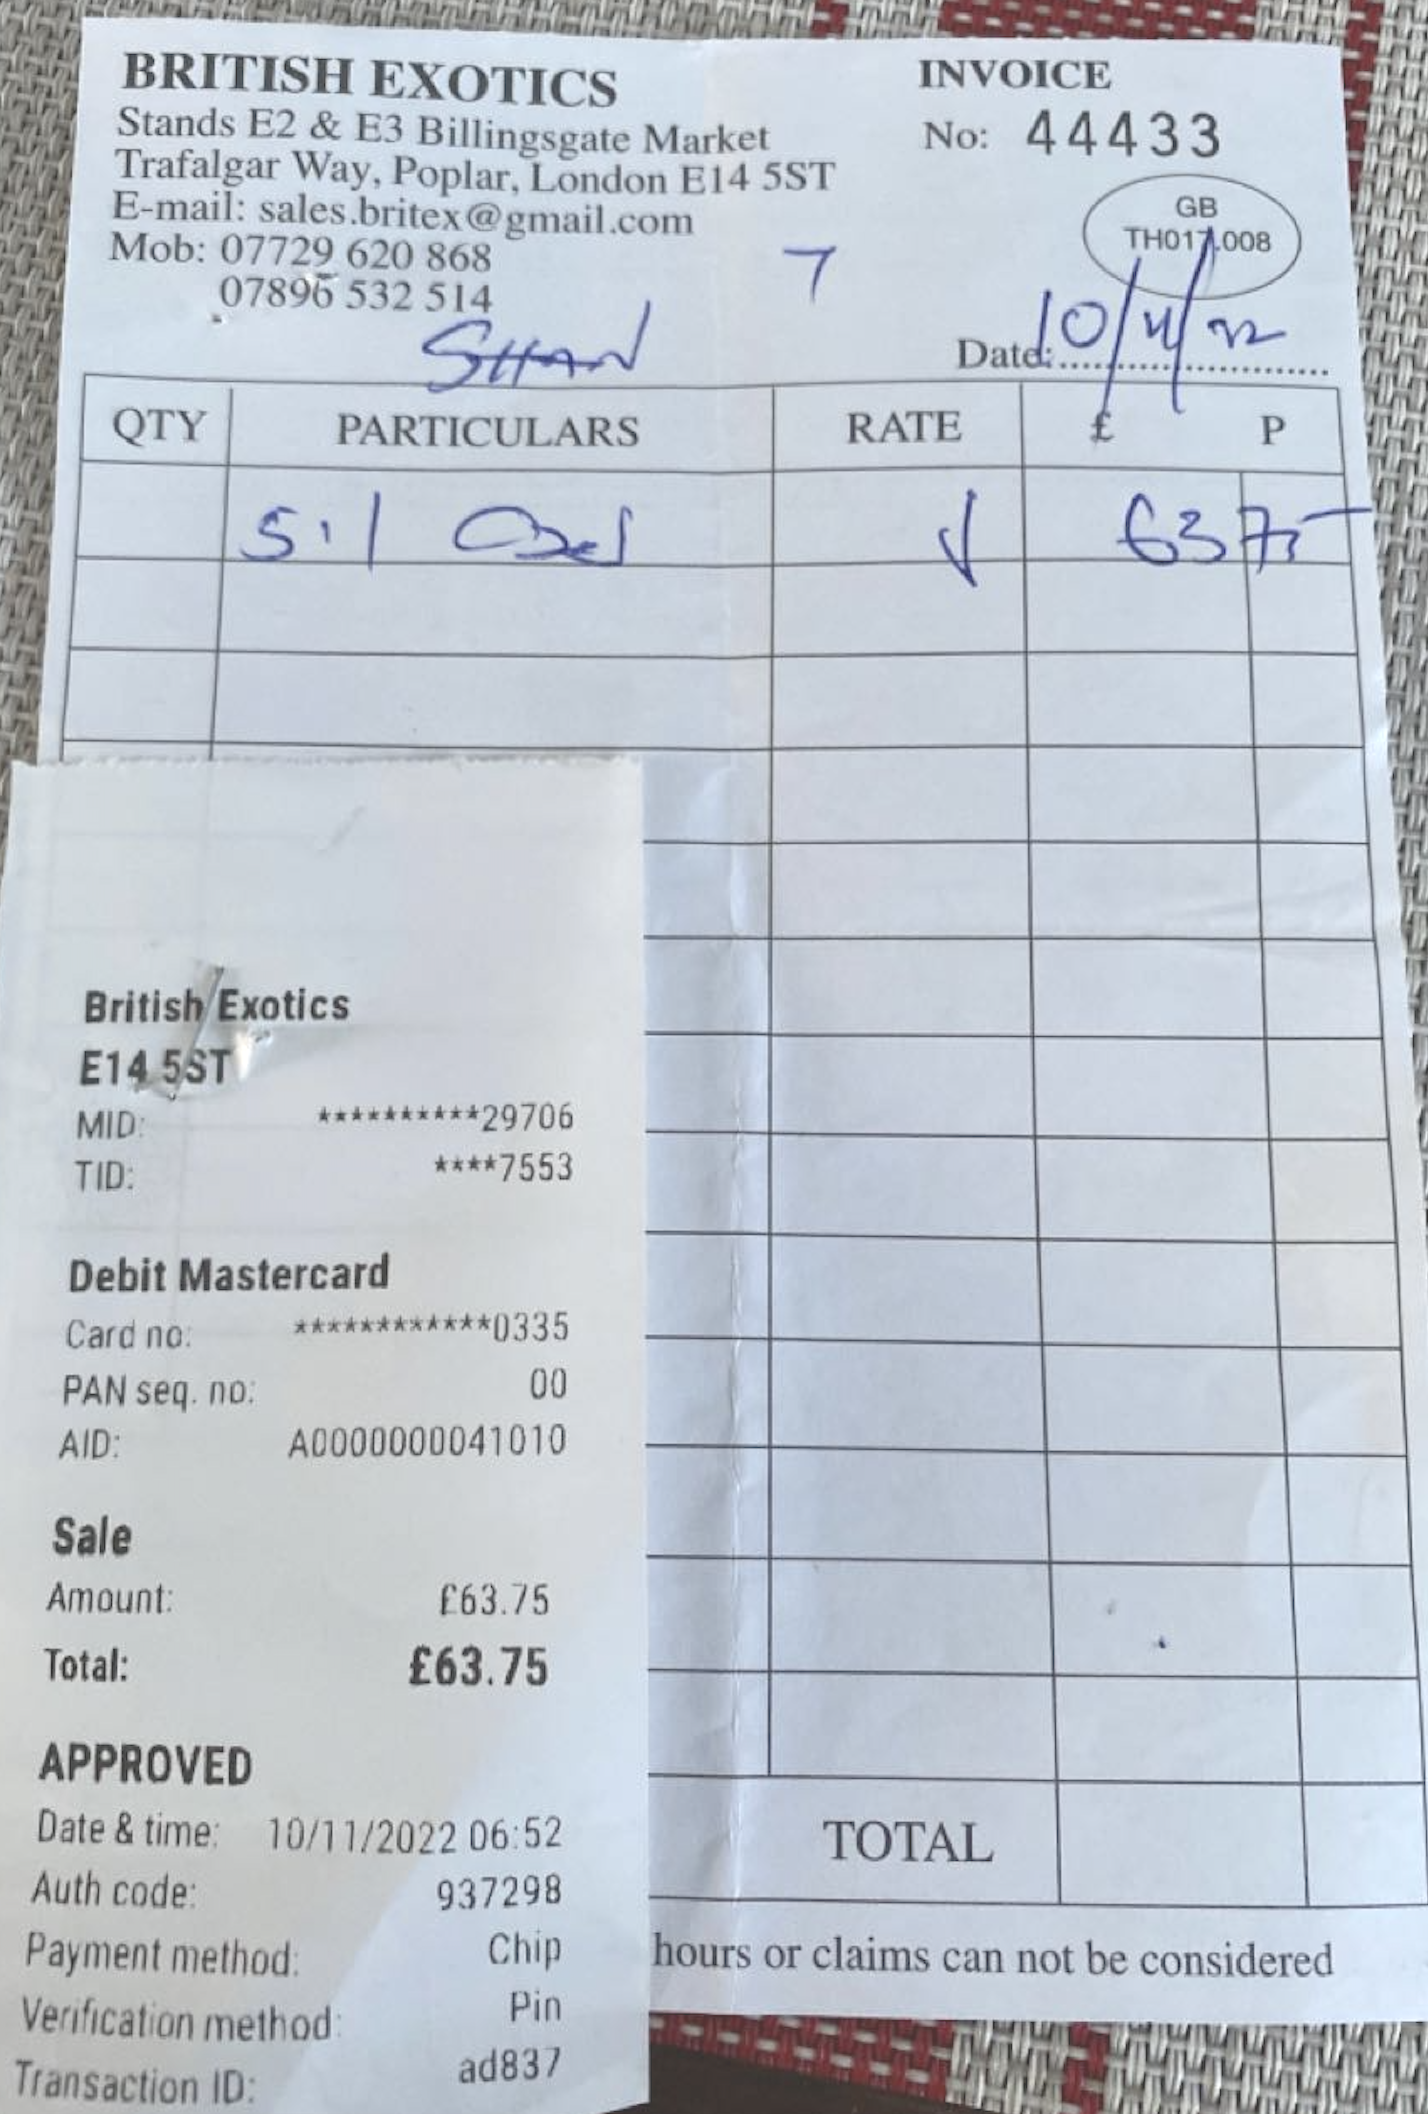 BRITISH EXOTICS
Stands E2 & E3 Billingsgate Market
Trafalgar Way, Poplar, London E14 5ST
E-mail: sales.britex@gmail.com
Mob: 07729 620 868
07896 532 514
INVOICE
No: 44433
GB
TH017.008
7
SHAN
Date: 10/11/22
QTY PARTICULARS RATE £ P
Sil 63 75
TOTAL
hours or claims can not be considered
British Exotics
E14 5ST
MID: **********29706
TID: ****7553
Debit Mastercard
Card no: ************0335
PAN seq. no: 00
AID: A0000000041010
Sale
Amount: £63.75
Total: £63.75
APPROVED
Date & time: 10/11/2022 06:52
Auth code: 937298
Payment method: Chip
Verification method: Pin
Transaction ID: ad837